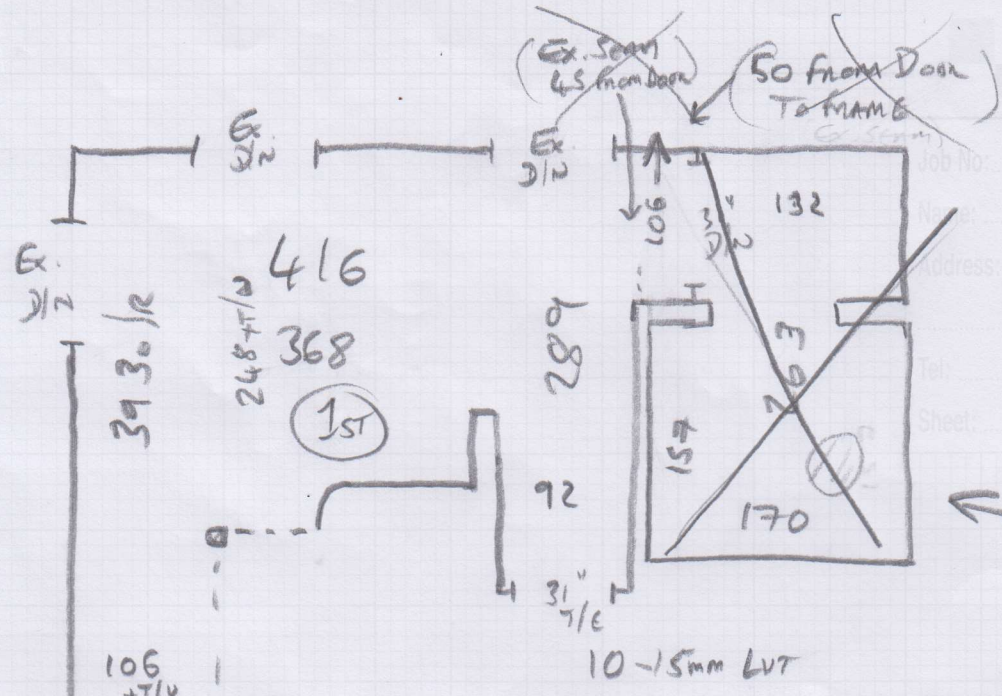 (Ex. Seam
45 from Door)
(50 from Door
To FRAME
Ex. Seam)
Job No:
Name:
Address:
Tel:
Sheet:
Ex.
D/2
Ex.
D/2
Ex.
D/2
106
3"
D/2
132
416
248+T/N
368
393 o/R
1ST
289
263
157
92
170
31"
T/E
10-15mm LVT
106